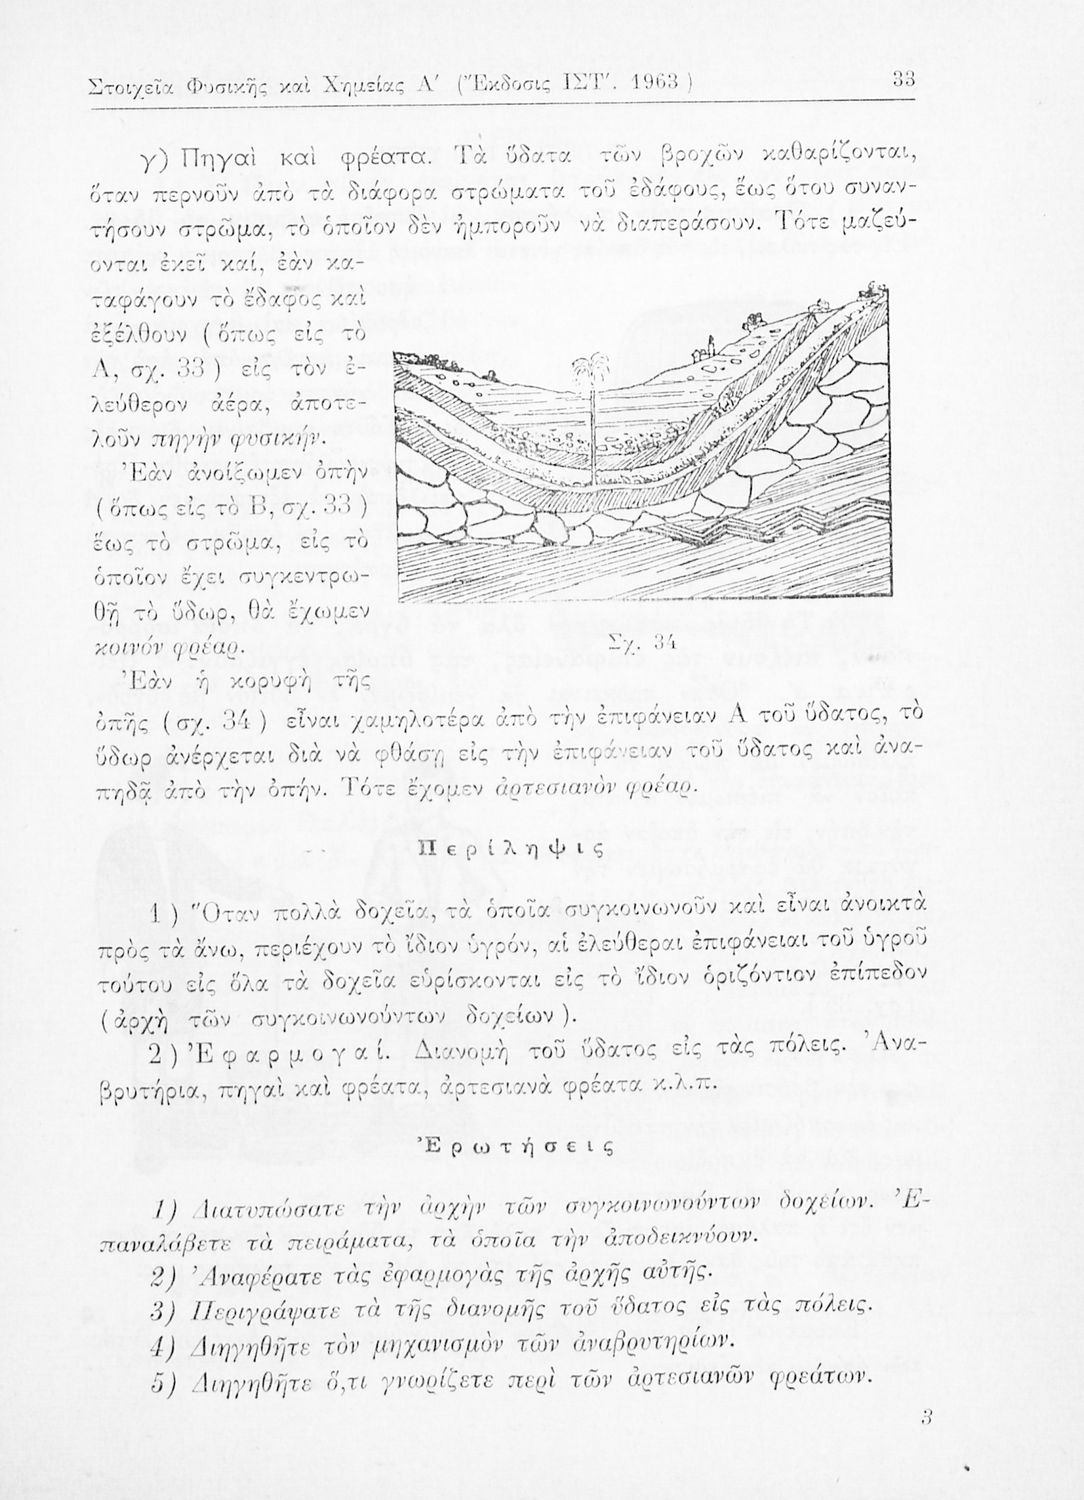 Στοιχεῖα Φυσικῆς καὶ Χημείας Α′ (Ἔκδοσις ΙΣΤ′. 1963) 33
γ) Πηγαὶ καὶ φρέατα. Τὰ ὕδατα τῶν βροχῶν καθαρίζονται,
ὅταν περνοῦν ἀπὸ τὰ διάφορα στρώματα τοῦ ἐδάφους, ἕως ὅτου συναν-
τήσουν στρῶμα, τὸ ὁποῖον δὲν ἠμποροῦν νὰ διαπεράσουν. Τότε μαζεύ-
ονται ἐκεῖ καί, ἐὰν κα-
ταφάγουν τὸ ἔδαφος καὶ
ἐξέλθουν (ὅπως εἰς τὸ
Α, σχ. 33) εἰς τὸν ἐ-
λεύθερον ἀέρα, ἀποτε-
λοῦν πηγὴν φυσικήν.
Ἐὰν ἀνοίξωμεν ὀπὴν
(ὅπως εἰς τὸ Β, σχ. 33)
ἕως τὸ στρῶμα, εἰς τὸ
ὁποῖον ἔχει συγκεντρω-
θῆ τὸ ὕδωρ, θὰ ἔχωμεν
κοινόν φρέαρ.
Σχ. 34
Ἐὰν ἡ κορυφὴ τῆς
ὀπῆς (σχ. 34) εἶναι χαμηλοτέρα ἀπὸ τὴν ἐπιφάνειαν Α τοῦ ὕδατος, τὸ
ὕδωρ ἀνέρχεται διὰ νὰ φθάσῃ εἰς τὴν ἐπιφάνειαν τοῦ ὕδατος καὶ ἀνα-
πηδᾷ ἀπὸ τὴν ὀπήν. Τότε ἔχομεν ἀρτεσιανὸν φρέαρ.
Περίληψις
1) Ὅταν πολλὰ δοχεῖα, τὰ ὁποῖα συγκοινωνοῦν καὶ εἶναι ἀνοικτὰ
πρὸς τὰ ἄνω, περιέχουν τὸ ἴδιον ὑγρόν, αἱ ἐλεύθεραι ἐπιφάνειαι τοῦ ὑγροῦ
τούτου εἰς ὅλα τὰ δοχεῖα εὑρίσκονται εἰς τὸ ἴδιον ὁριζόντιον ἐπίπεδον
(ἀρχὴ τῶν συγκοινωνούντων δοχείων).
2) Ἐφαρμογαί. Διανομὴ τοῦ ὕδατος εἰς τὰς πόλεις. Ἀνα-
βρυτήρια, πηγαὶ καὶ φρέατα, ἀρτεσιανὰ φρέατα κ.λ.π.
Ἐρωτήσεις
1) Διατυπώσατε τὴν ἀρχὴν τῶν συγκοινωνούντων δοχείων. Ἐ-
παναλάβετε τὰ πειράματα, τὰ ὁποῖα τὴν ἀποδεικνύουν.
2) Ἀναφέρατε τὰς ἐφαρμογὰς τῆς ἀρχῆς αὐτῆς.
3) Περιγράψατε τὰ τῆς διανομῆς τοῦ ὕδατος εἰς τὰς πόλεις.
4) Διηγηθῆτε τὸν μηχανισμὸν τῶν ἀναβρυτηρίων.
5) Διηγηθῆτε ὅ,τι γνωρίζετε περὶ τῶν ἀρτεσιανῶν φρεάτων.
3